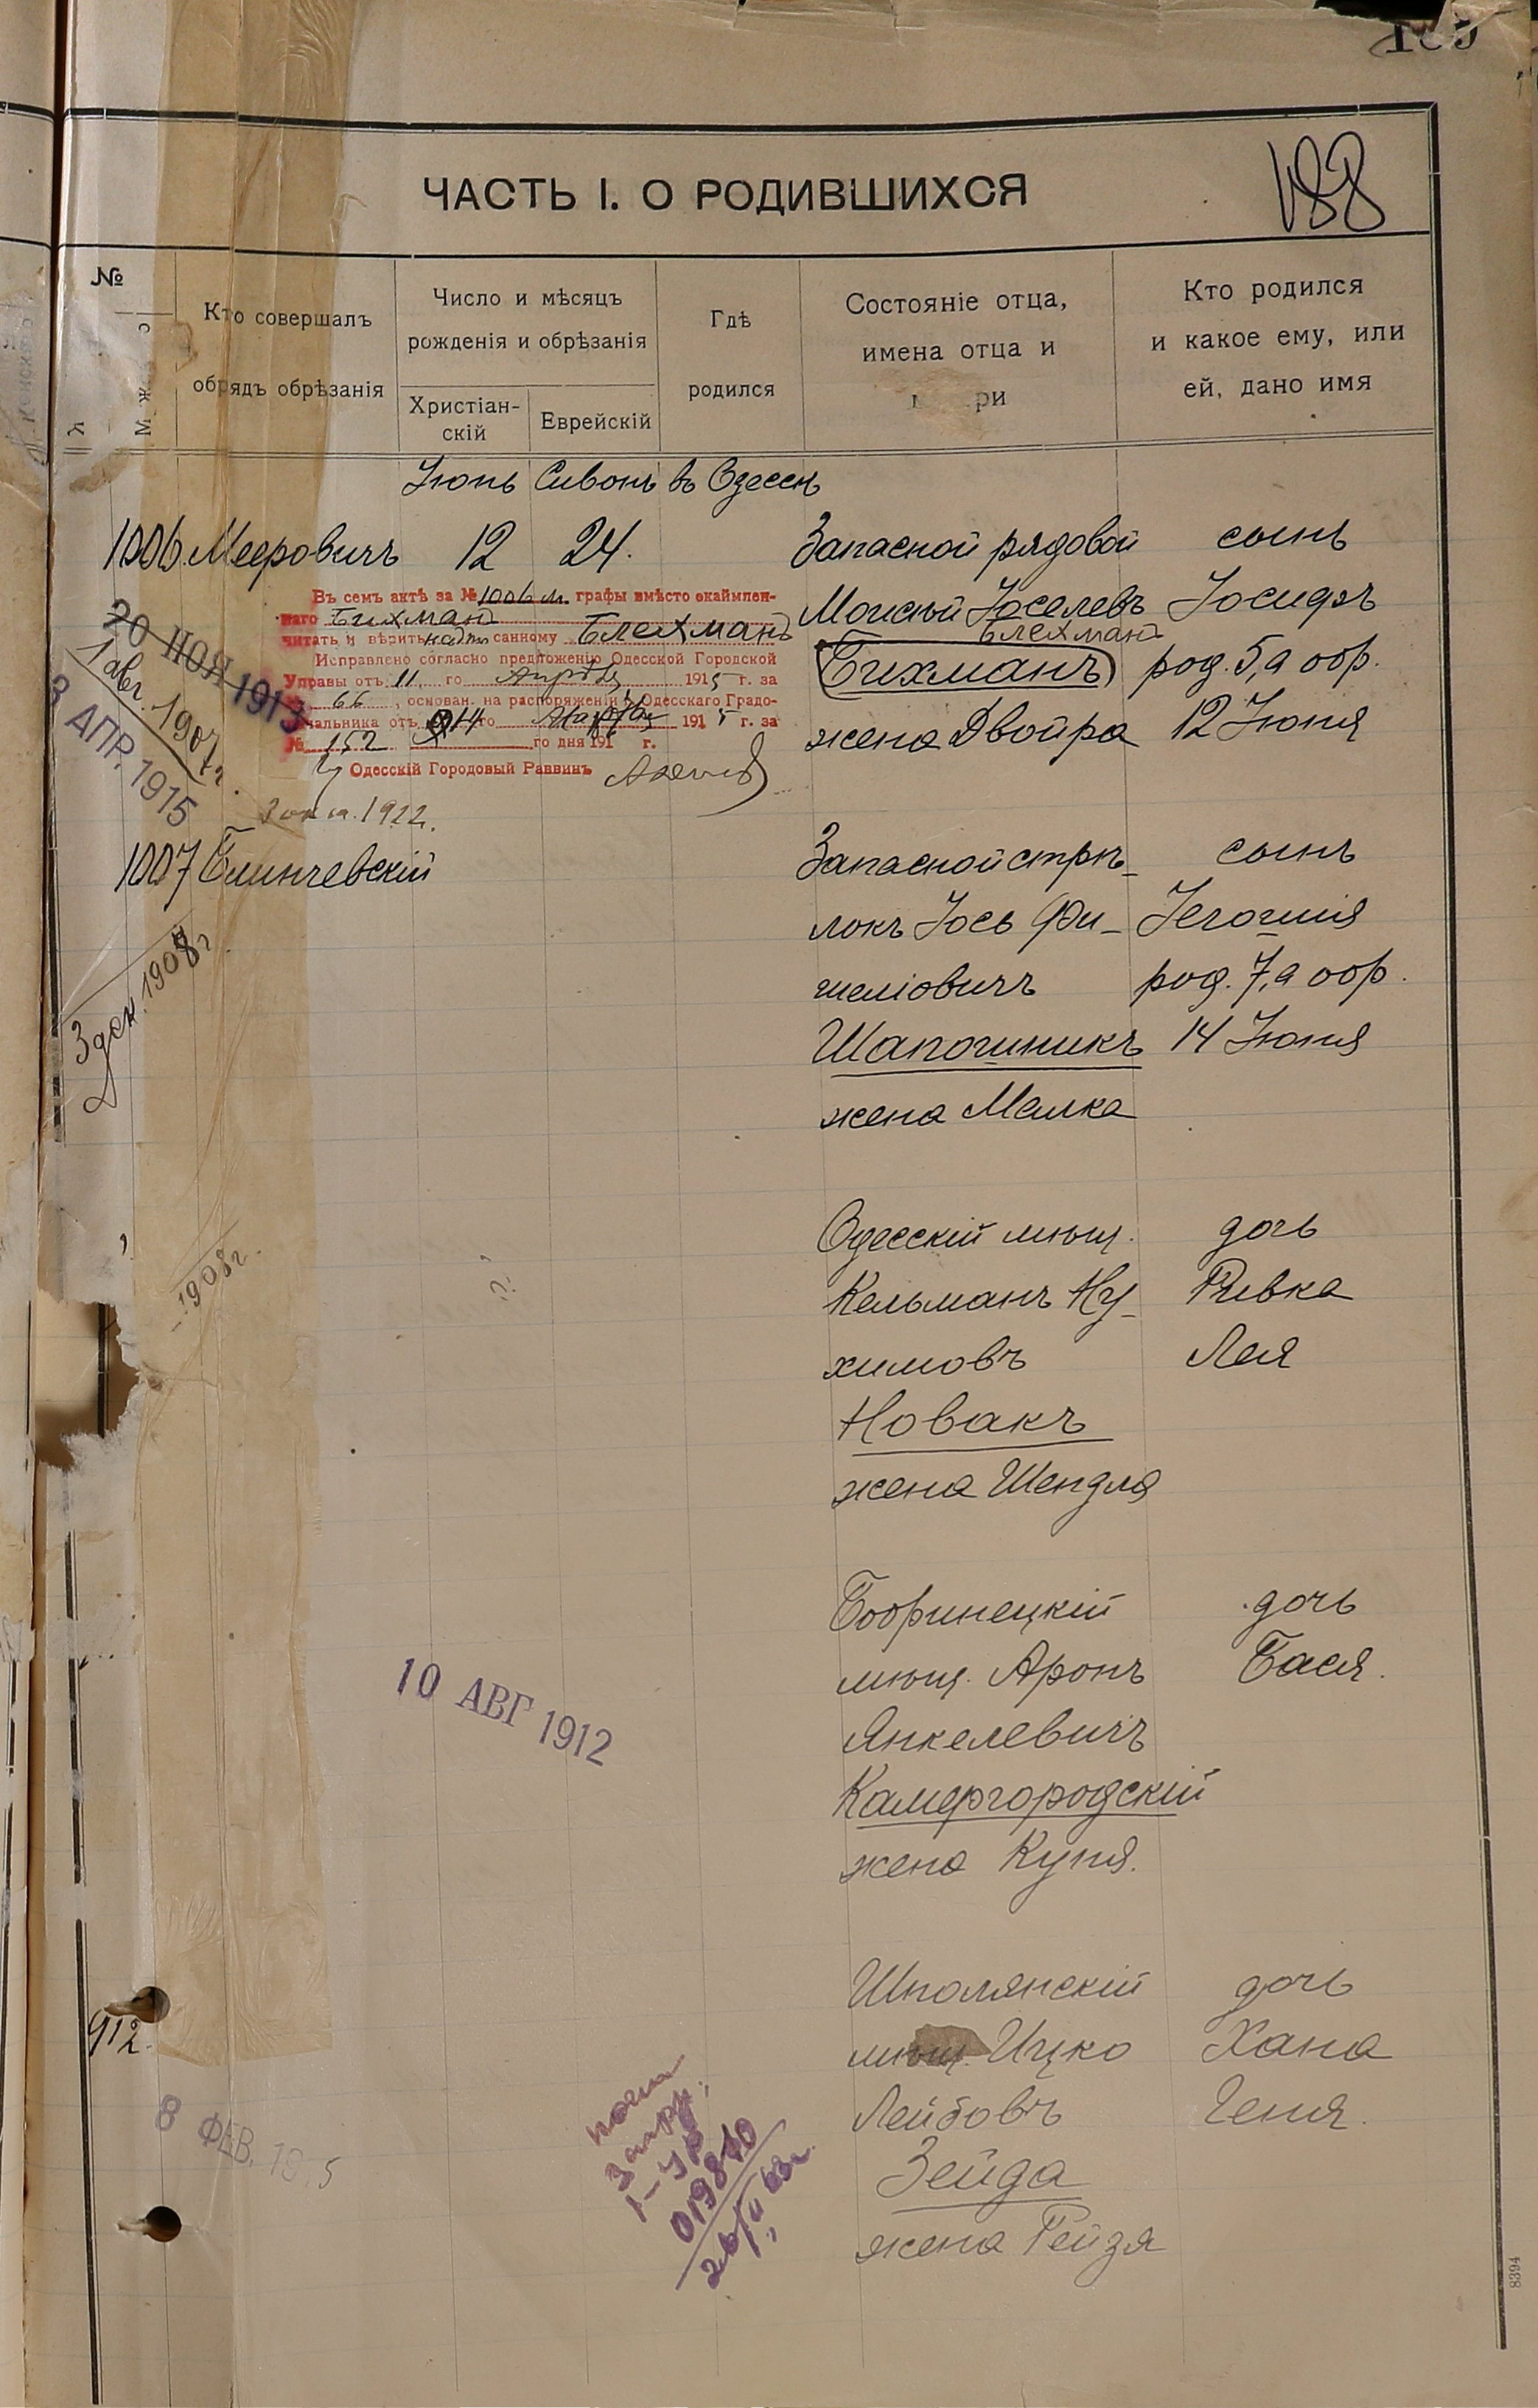 ЧАСТЬ I. О РОДИВШИХСЯ
188
№
Кто совершалъ
обрядъ обрѣзанія
Число и мѣсяцъ
рожденія и обрѣзанія
Христіан-
скій
Еврейскій
Гдѣ
родился
Состояніе отца,
имена отца и
ри
Кто родился
и какое ему, или
ей, дано имя
Іюнь Сивонъ въ Одессѣ
1006. Мееровичъ 12 24.
Запасной рядовой
Моисей Іоселевъ
Блехманъ
Бихманъ
жена Двойра
сынъ
Іосифъ
род. 5, а обр.
12 Іюня
Въ семъ актѣ за № 1006 м. графы вмѣсто окаймлен-
наго Бихманъ
читать и вѣрить надписанному Блехманъ
Исправлено согласно предложенію Одесской Городской
Управы отъ 11 го Апрѣля 1915 г. за
66, основан. на распоряженіи Одесскаго Градо-
начальника отъ 14 го Марта 1915 г. за
№ 152 го дня 191 г.
Одесскій Городовый Раввинъ
20 НОЯ 1913
1 авг. 1907 г.
3 АПР. 1915
1922.
1007 Блинчевскій
Запасной стрѣ-
локъ Іось Фи-
шеліовичъ
Шапошникъ
жена Малка
сынъ
Іегошія
род. 7, а обр.
14 Іюня
3 дек. 1908 г.
1908 г.
Одесскій мѣщ.
Кельманъ Ну-
химовъ
Новакъ
жена Шендля
дочь
Ривка
Лея
Бобринецкій
мѣщ. Аронъ
Янкелевичъ
Камергородскій
жена Куня.
дочь
Бася.
10 АВГ 1912
Шполянскій
мѣщ. Ицко
Лейбовъ
Зейда
жена Рейзя
дочь
Хана
Геня.
912.
8 ФЕВ. 19 5
I-УР
8394